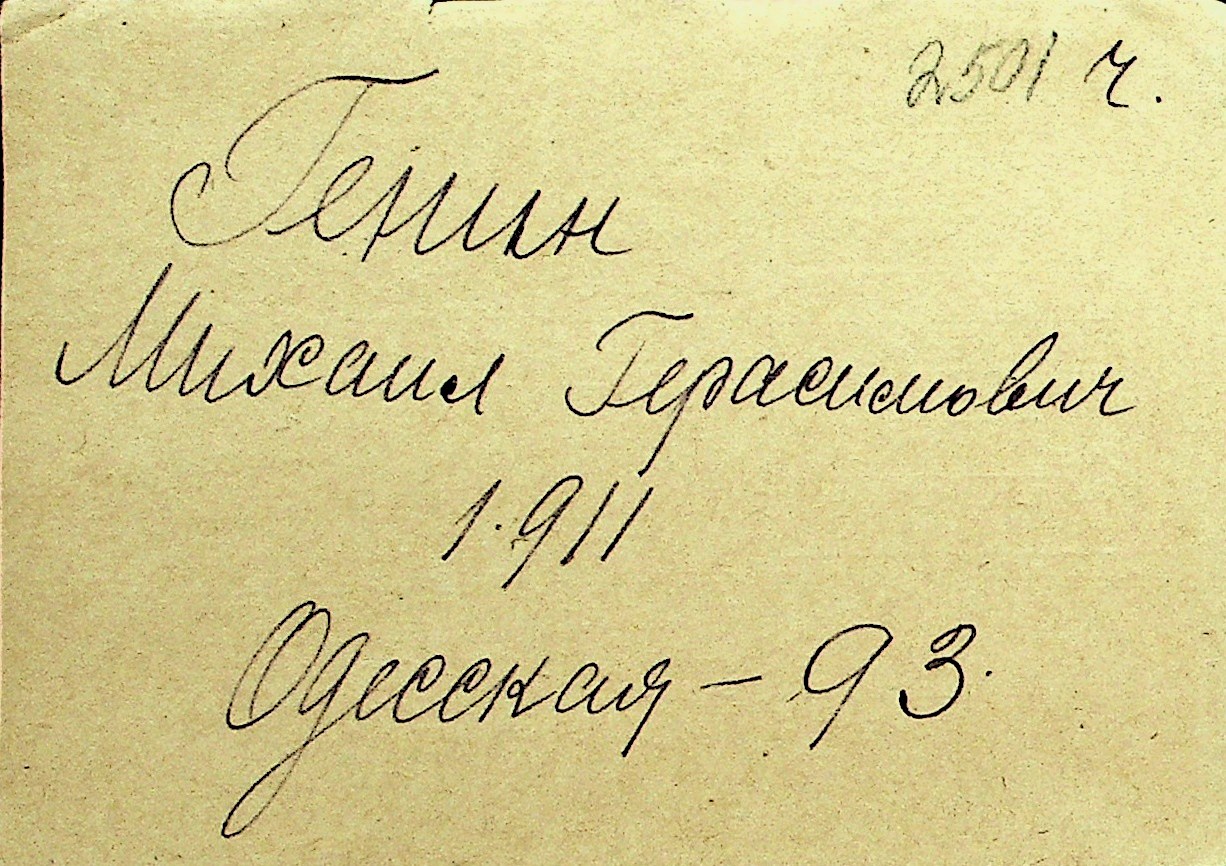 2501 ч.
Генин
Михаил Герасимович
1.911
Одесская - 93.